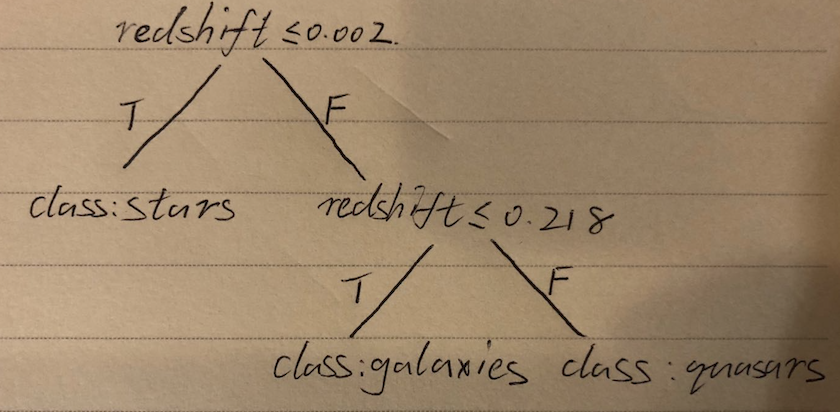 redshift ≤0.002.
T F
class:stars redshift≤ 0.218
T F
class:galaxies class:quasars